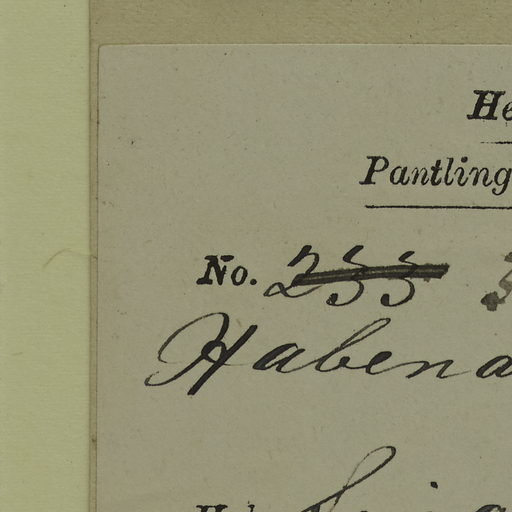 He
Pantling
No. 233
Habena